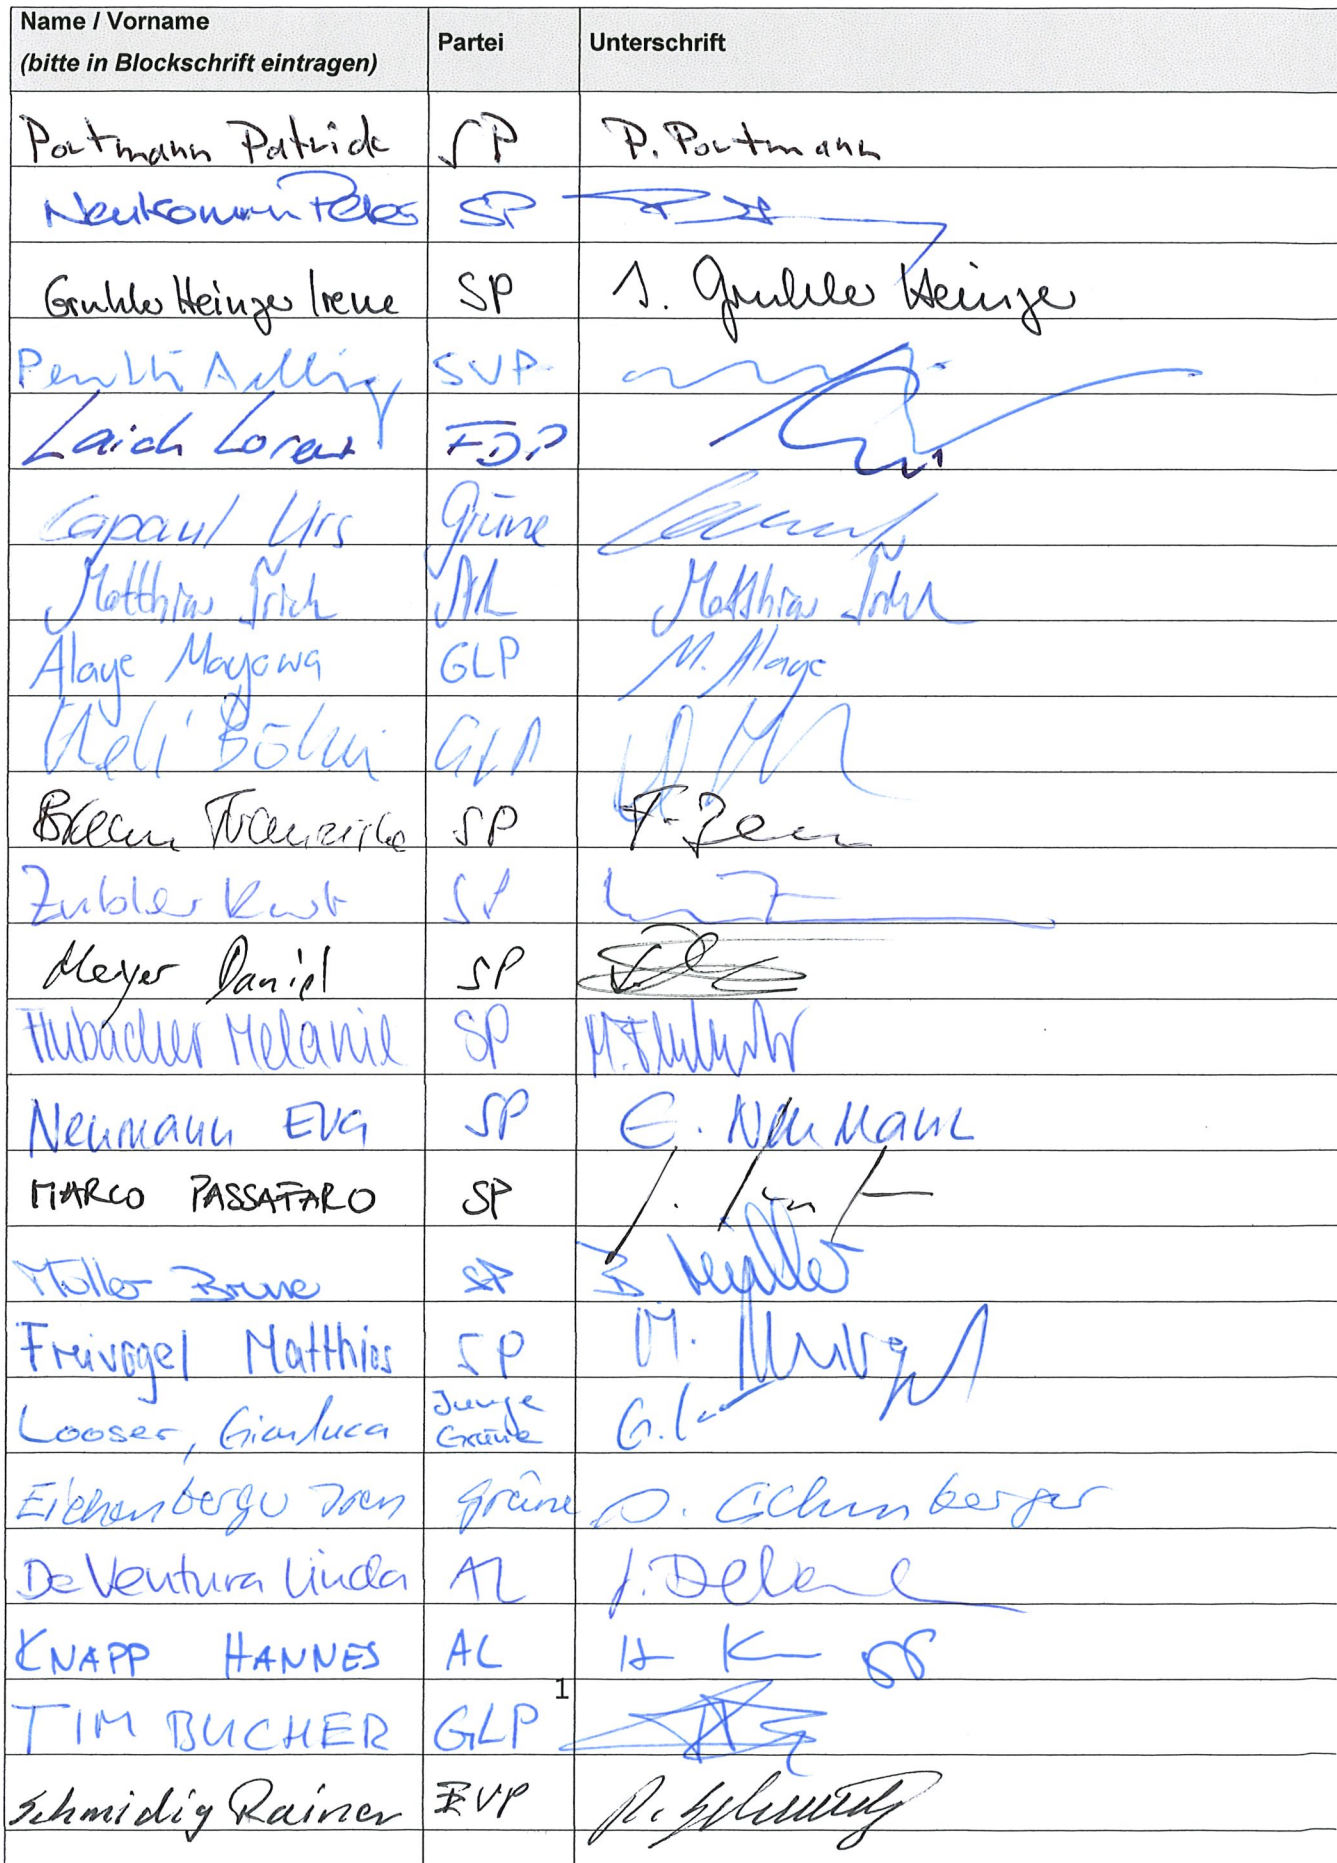 Name / Vorname
(bitte in Blockschrift eintragen) Partei Unterschrift
Portmann Patrick SP P. Portmann
Neukomm Peter SP
Gruhler Heinzer Irene SP I. Gruhler Heinzer
Penkti Aellig SVP
Laich Lorenz FDP
Capaul Urs Grüne
Matthias Frick AL Matthias Frick
Alaye Mayowa GLP M. Alaye
Ueli Böhni GLP
Brenn Franziska SP
Zubler Kurt SP
Meyer Daniel SP
Hubacher Melanie SP M. Hubacher
Neumann Eva SP E. Neumann
MARCO PASSAFARO SP
Müller Bruno SP B Müller
Freivogel Matthias SP M. Freivogel
Looser, Gianluca Junge Grüne G. L
Eichenberger Iren Grüne I. Eichenberger
De Ventura Linda AL
KNAPP HANNES AL H K
1
TIM BUCHER GLP
Schmidig Rainer EVP R. Schmidig